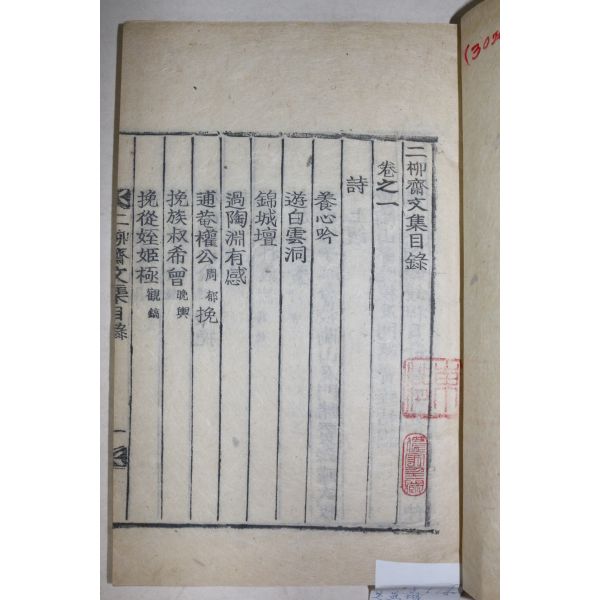 二柳齋文集目錄
卷之一
詩
養心吟
遊白雲洞
錦城壇
過陶淵有感
逋菴權公周郁挽
挽族叔希曾晚輿
挽從姪姬極觀鎬
二柳齋文集目錄 一
(302